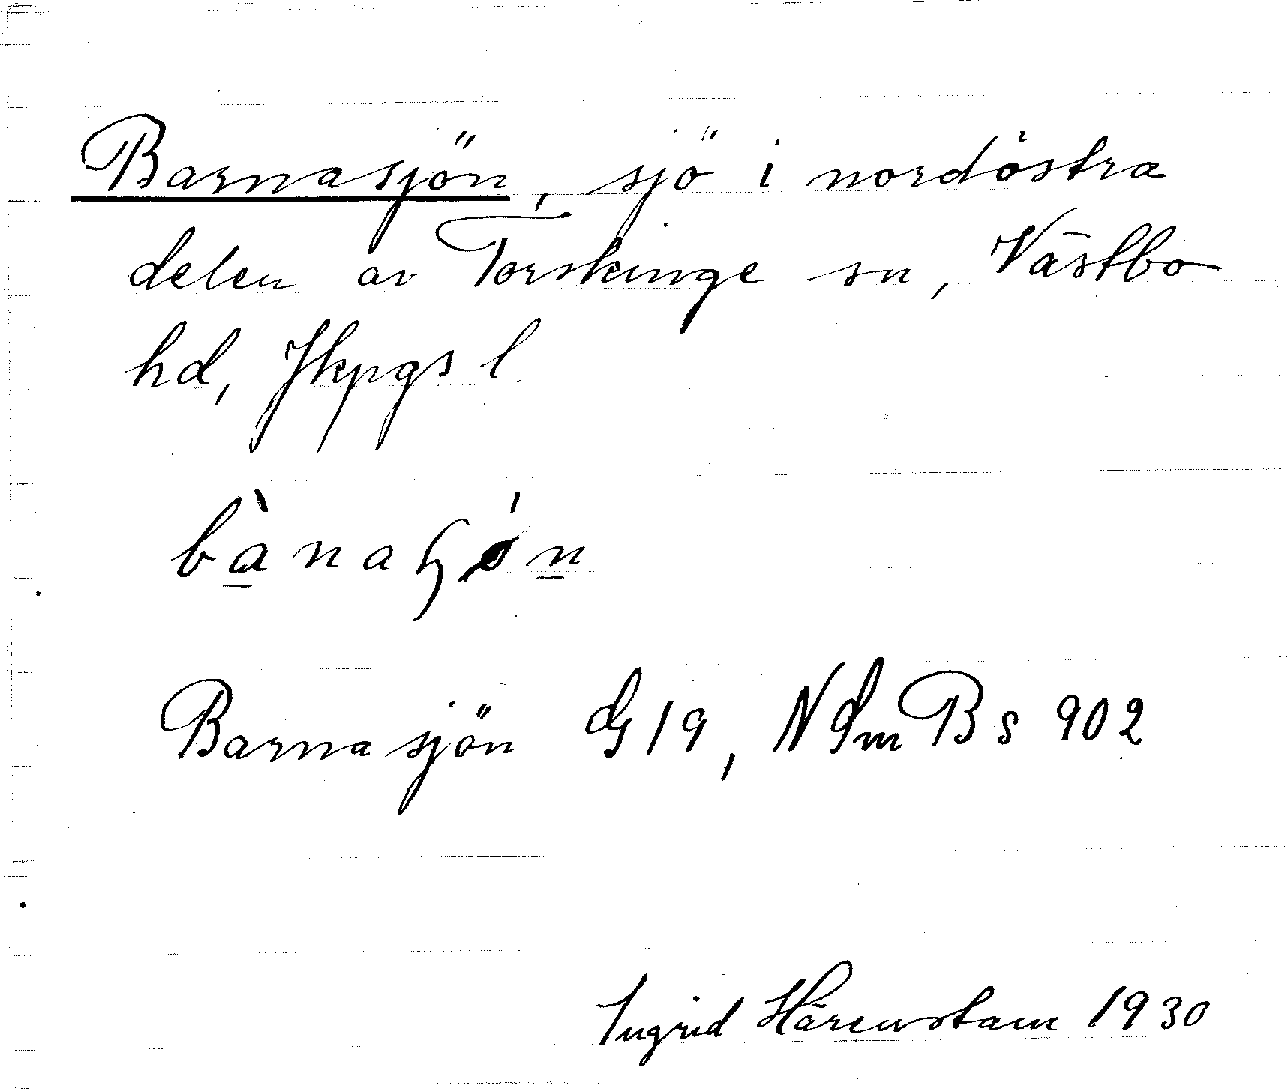 Barnasjön, sjö i nordöstra
delen av Torskinge sn, Västbo
hd, Jkpgs l
bànaɧón
Barnasjön G 19, N Sm B s 902
Ingrid Härenstam 1930